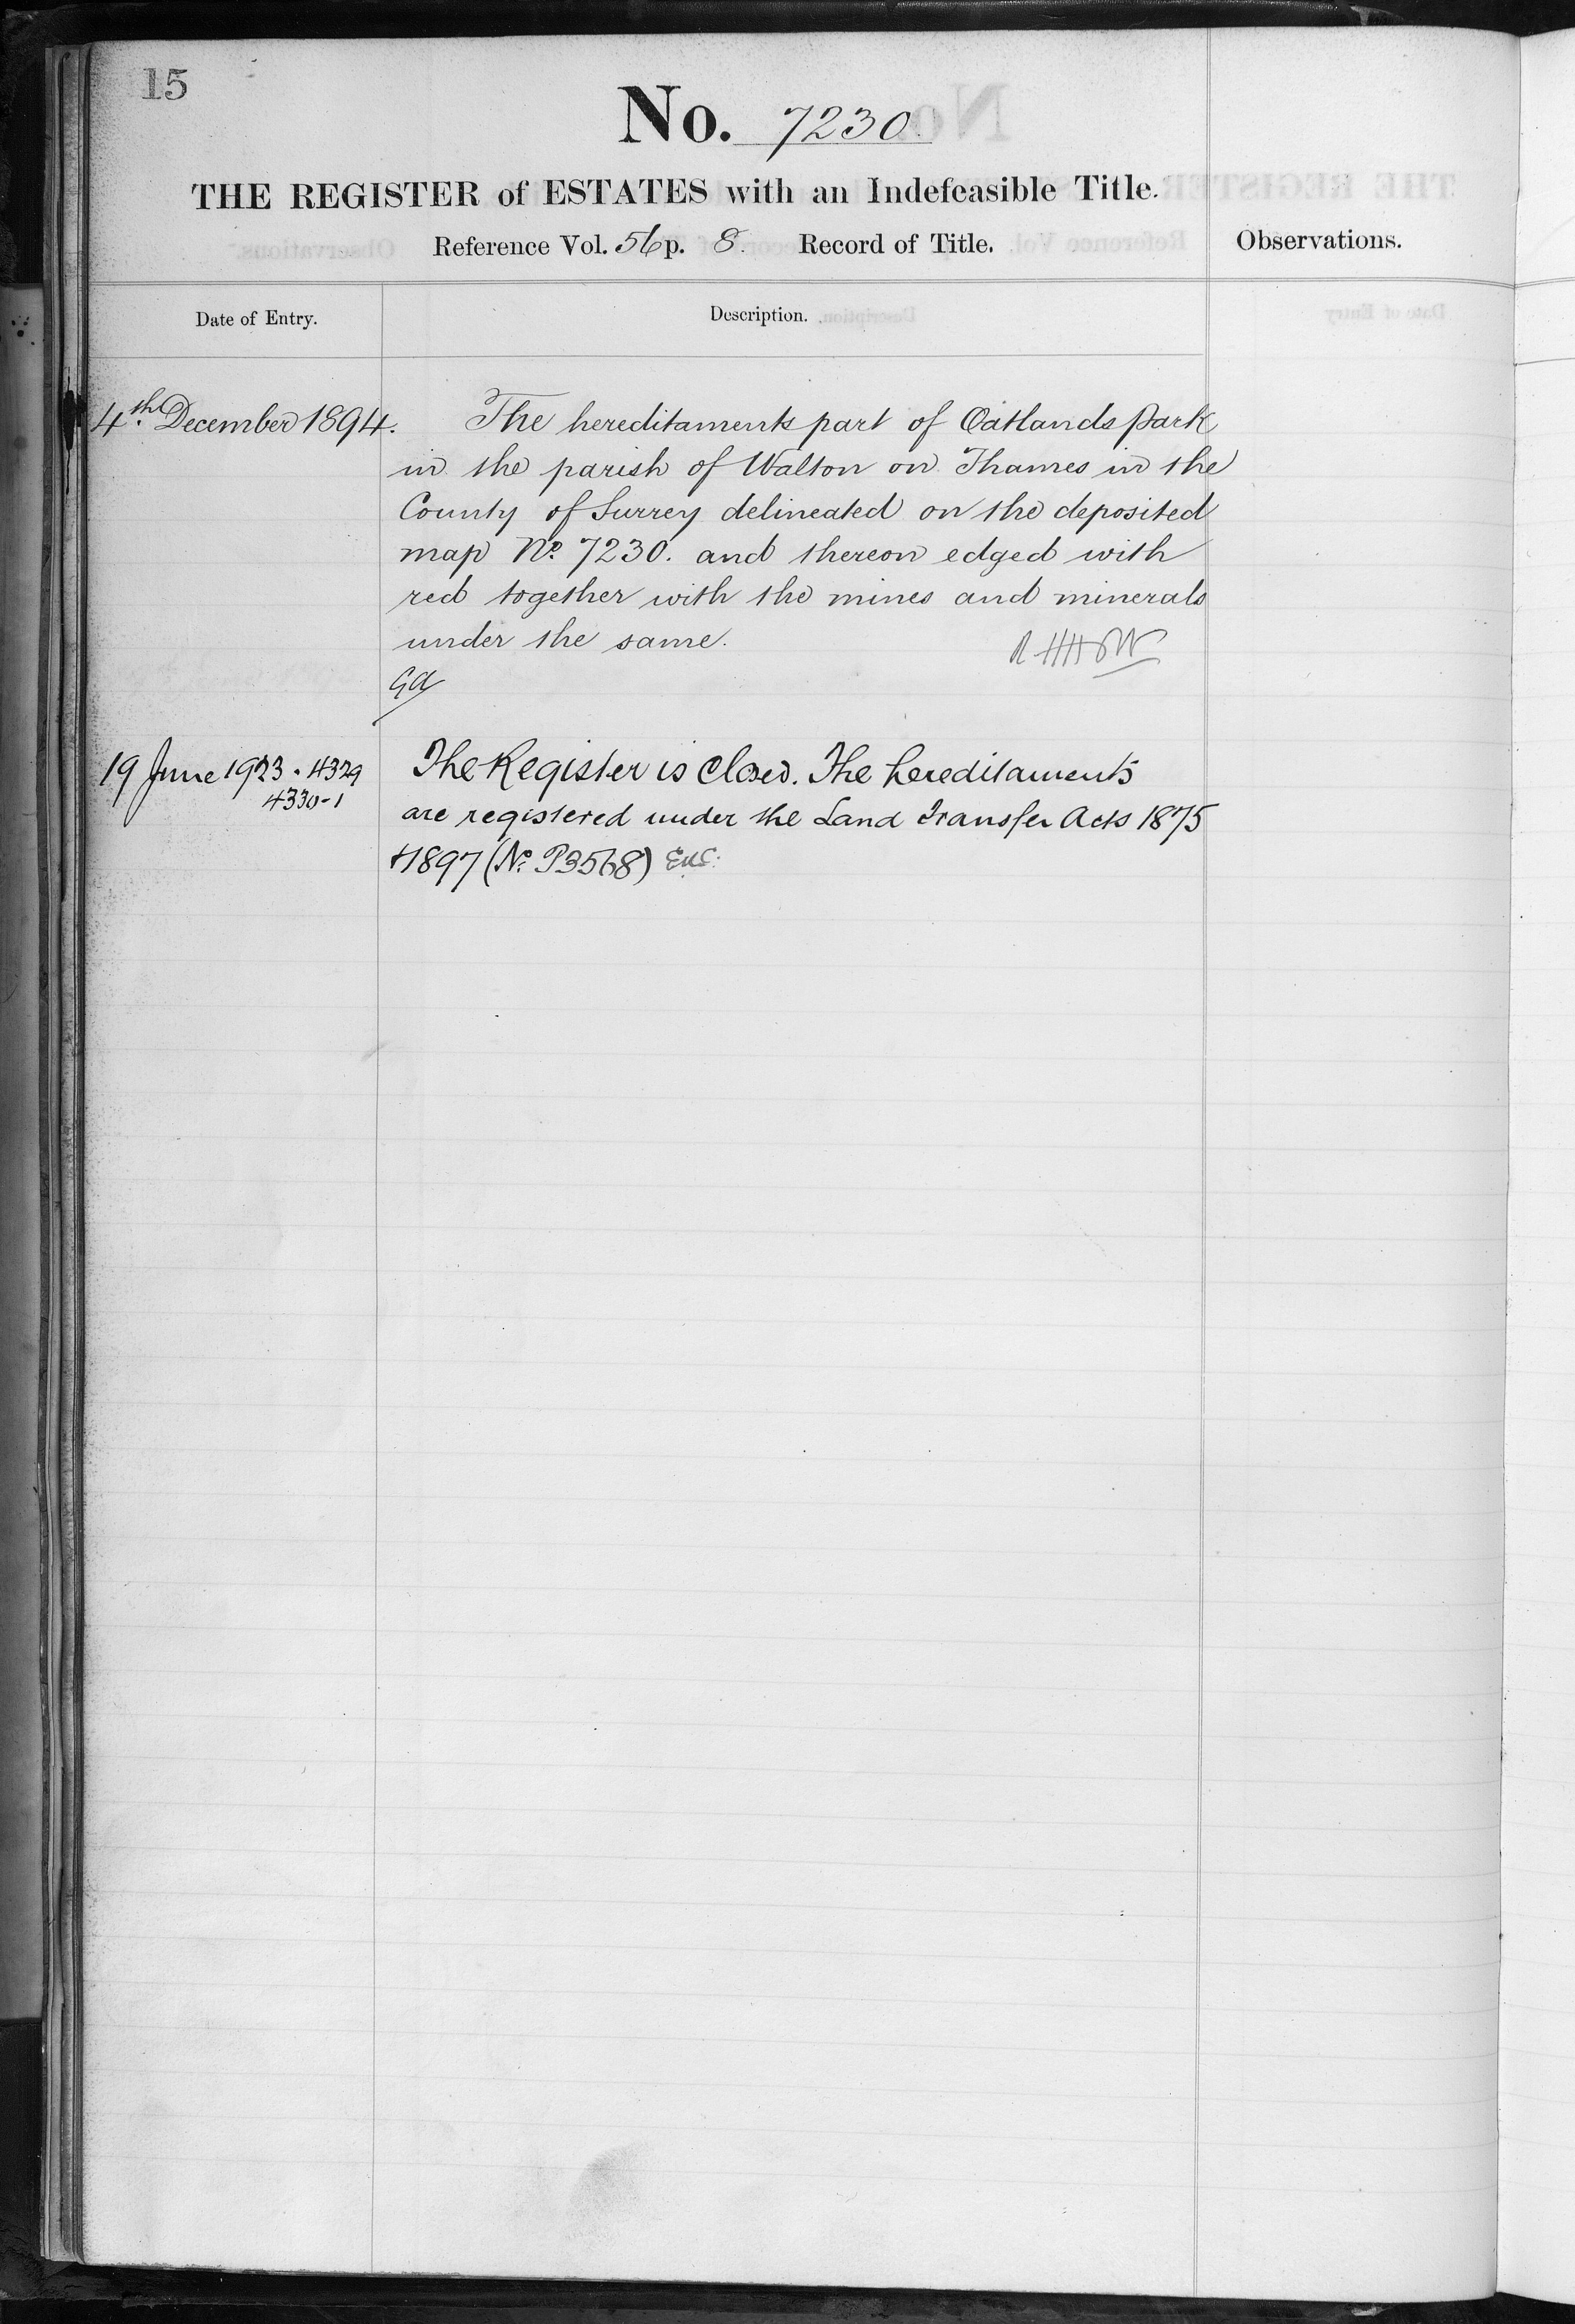 15
No. 7230.
THE REGISTER of ESTATES with an Indefeasible Title.
Reference Vol. 56 p. 8. Record of Title.
Observations.
Date of Entry.
Description.
4th December 1894.
The hereditaments part of Oatlands Park
in the parish of Walton on Thames in the
County of Surrey delineated on the deposited
map No. 7230. and thereon edged with
red together with the mines and minerals
under the same.
GA
19 June 1923. 4329
4330-1
The Register is closed. The hereditaments
are registered under the Land Transfer Acts 1875
& 1897 (No. P3568)